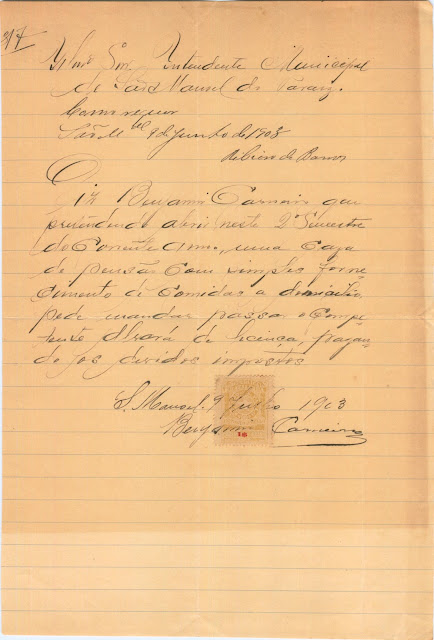 317
Illmo Snr. Intendente Municipal
de São Manuel do Paraizo.
Como requer
São Mel 9 de Junho de 1908
Ribeiro de Barros
Diz Benjamin Carneiro que
pretendendo abrir neste 2º Semestre
do Corrente Anno, uma Caza
de pensão Com simples forne-
cimento de Comidas a domicilio,
pede mandar passar o Compe-
tente Alvará de licença, pagan-
do os devidos impostos
S. Manoel. 9 Julho 1903
Benjamin Carneiro